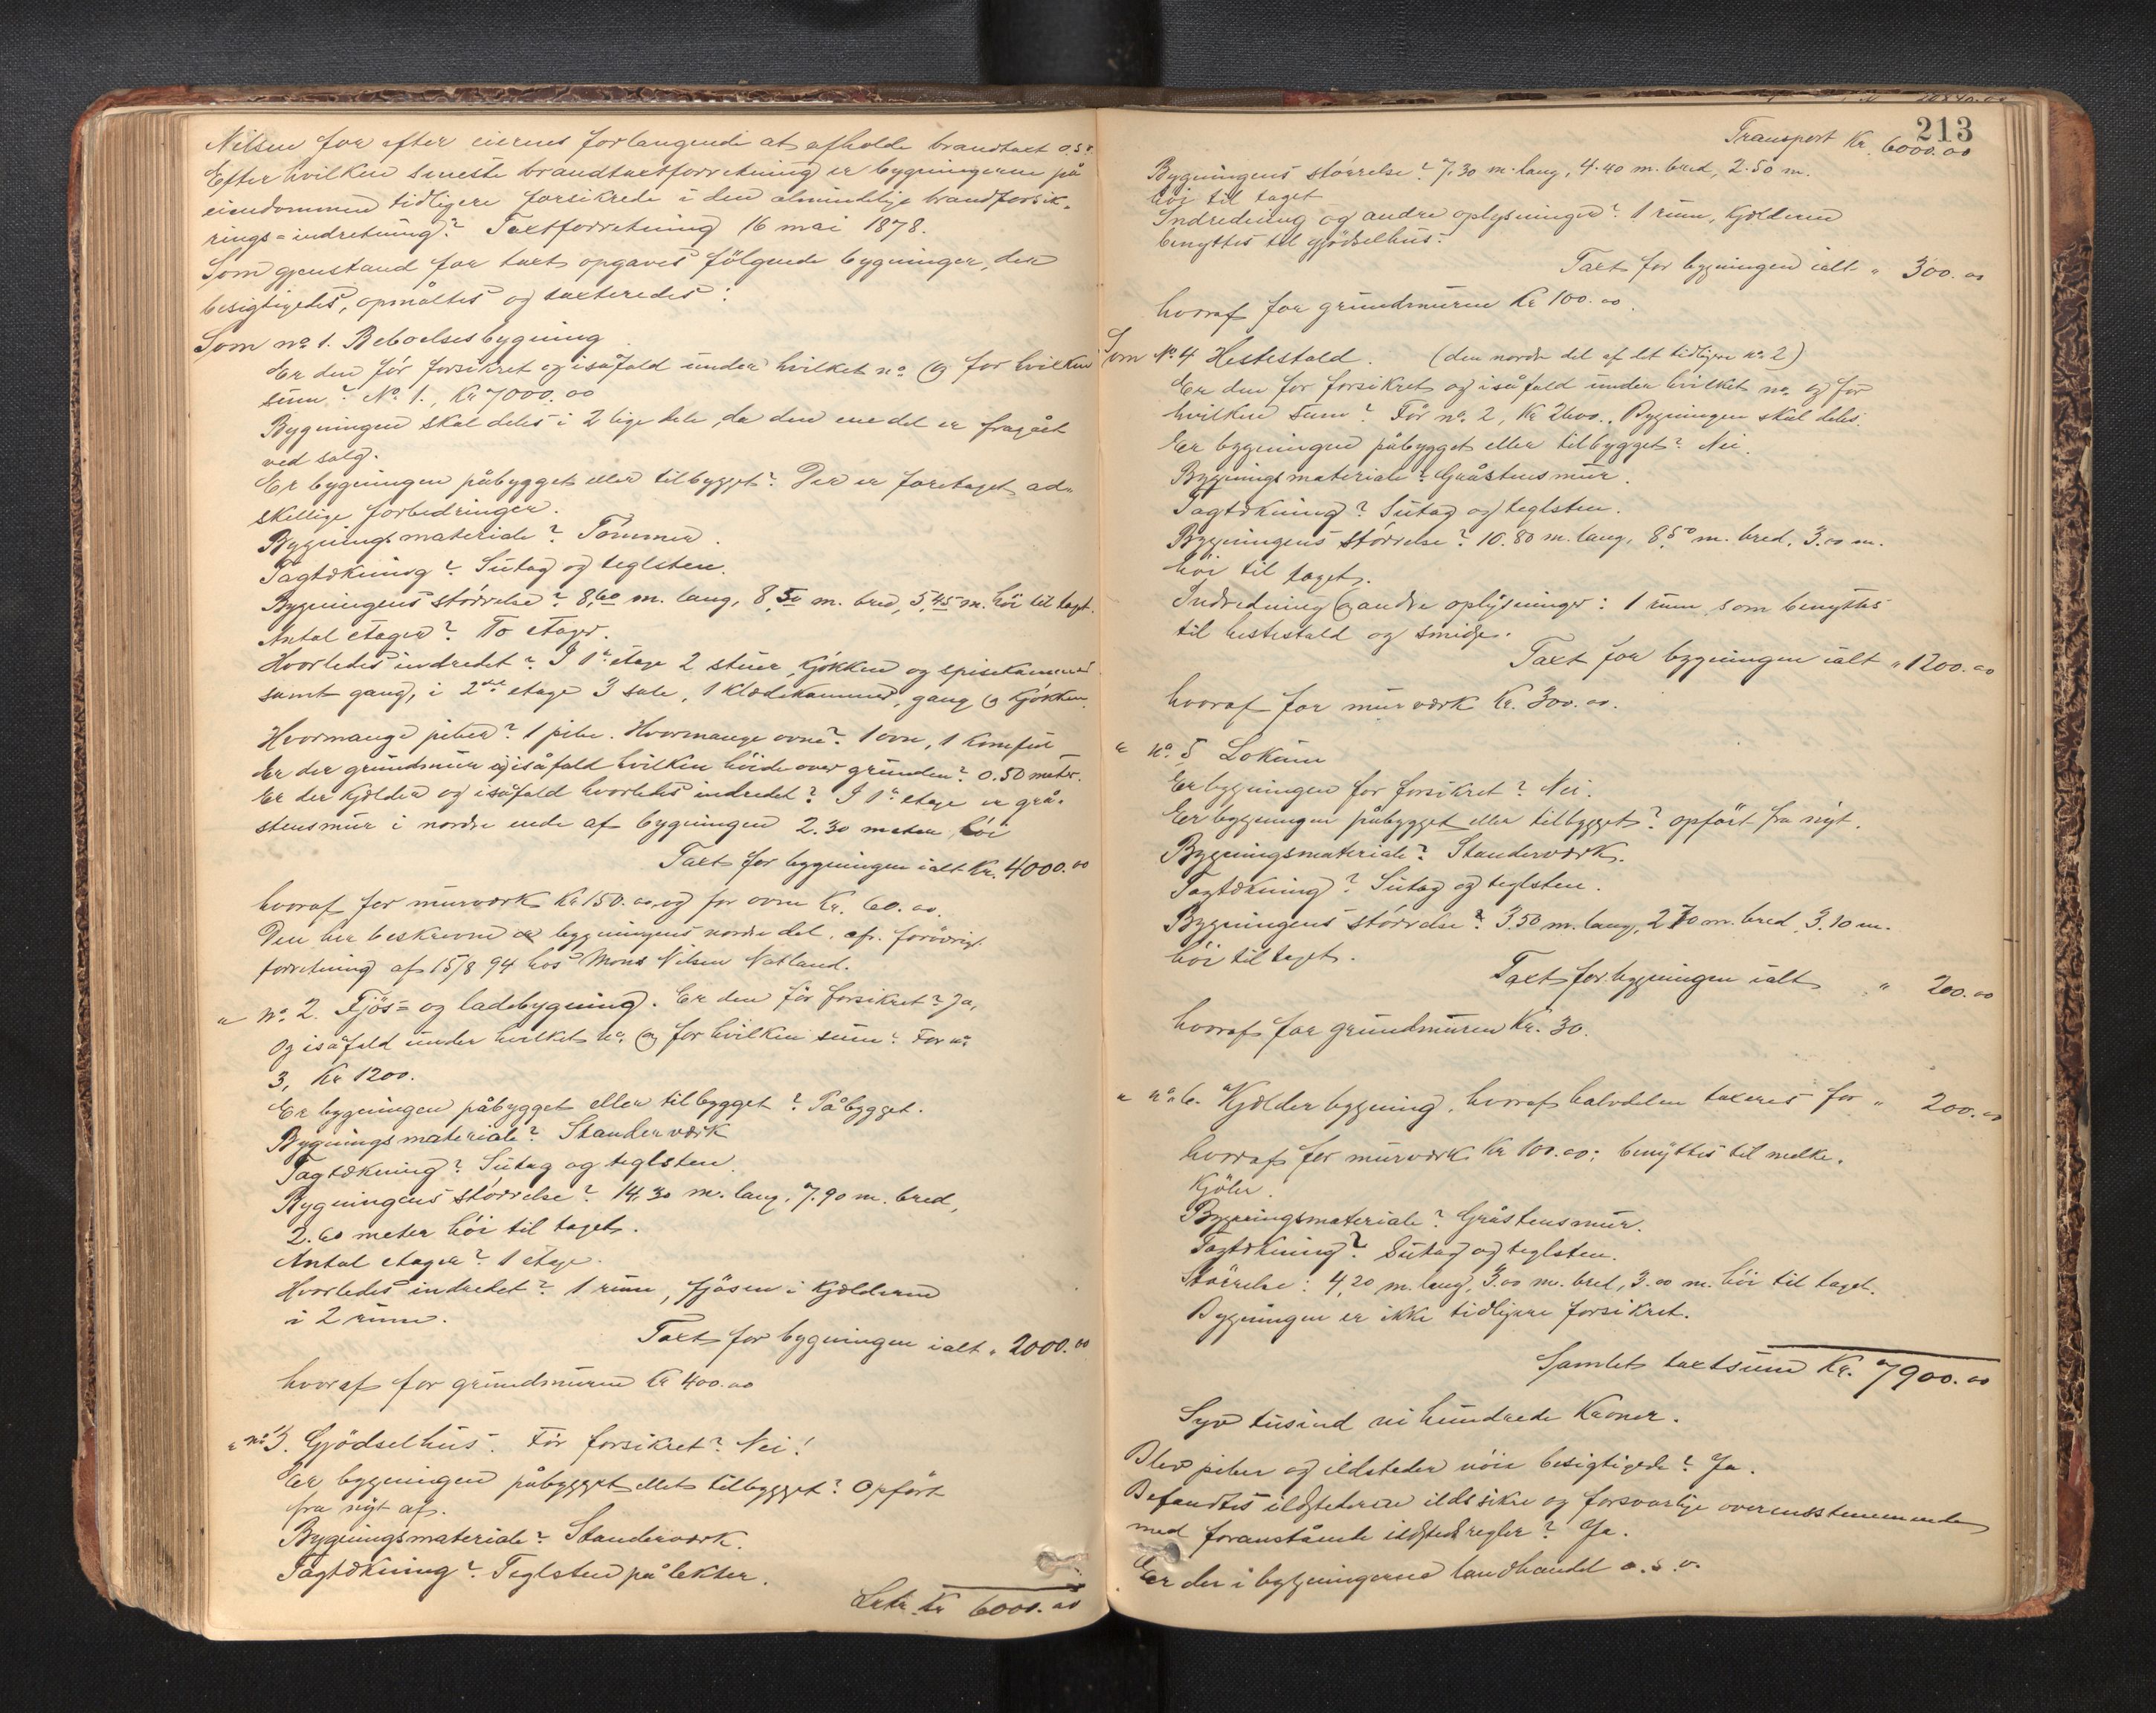 Nilsen for efter eierens forlangende at afholde brandtaxt o.s.v.
Efter hvilken seneste brandtaxtforretning er bygningerne på
eiendommen tidligere forsikrede i den almindelige brandforsik-
rings-indretning? Taxtforretning 16 mai 1878.
Som gjenstand for taxt opgaves følgende bygninger, der
besigtigedes, opmåltes og taxteredes:
Som no 1. Beboelsesbygning
Er den før forsikret og isåfald under hvilket no og for hvilken
sum? No 1., Kr 7000.00
Bygningen skal deles i 2 lige dele, da den ene del er fragået
ved salg.
Er bygningen påbygget eller tilbygget? Der er foretaget ad-
skellige forbedringer.
Bygningsmateriale? Tømmer.
Tagtækning? Sutag og teglsten.
Bygningens størrelse? 8,60 m. lang, 8,50 m. bred, 5,45 m. høi til taget.
Antal etager? To etager.
Hvorledes indredet? I 1ste etage 2 stuer, kjøkken og spisekammer
samt gang, i 2den etage 3 sale, 1 klædekammer, gang og kjøkken.
Hvormange piber? 1 pibe. Hvormange ovne? 1 ovn, 1 komfur
Er der grundmur og isåfald hvilken høide over grunden? 0.50 meter.
Er der kjælder og isåfald hvorledes indredet? I 1ste etage er grå-
stensmur i nordre ende af bygningen 2.30 meter høi
Taxt for bygningen ialt Kr. 4000.00
hvoraf for murværk Kr 150.00 og for ovne Kr. 60.00.
Den her beskrevne er bygningens nordre del, cfr. forøvrigt
forretning af 15/8 94 hos Mons Nilsen Natland.
" no 2. Fjøs- og ladebygning. Er den før forsikret? Ja,
Og isåfald under hvilket no og for hvilken sum? For no
3, Kr 1200.
Er bygningen påbygget eller tilbygget? Påbygget.
Bygningsmateriale? Standerværk
Tagtækning? Sutag og teglsten.
Bygningens størrelse? 14,30 m. lang, 7.90 m. bred,
2.60 meter høi til taget.
Antal etager? 1 etage.
Hvorledes indredet? 1 rum, fjøsen i kjælderen
i 2 rum.
Taxt for bygningen ialt " 2000.00
hvoraf for grundmuren Kr 400.00
" no 3. Gjødselhus. Før forsikret? Nei!
Er bygningen påbygget ellets tilbygget? Opført
fra nyt af.
Bygningsmateriale? Standerværk.
Tagtækning? Teglsten på lekter.
Latr. Kr 6000.00
213
Transport Kr 6000.00
Bygningens størrelse? 7,30 m. lang, 4.40 m. bred, 2.50 m.
høi til taget
Indredning og andre oplysninger? 1 rum, kjælderen
benyttes til gjødselhus.
Taxt for bygningen ialt " 300.00
hvoraf for grundmuren Kr 100.00.
Som No 4 Hestestald. (den nordre del af det tidligere no 2)
Er den før forsikret og isåfald under hvilket no og for
hvilken sum? Før no 2, Kr 2600.. Bygningen skal deles.
Er bygningen påbygget eller tilbygget? Nei.
Bygningsmateriale? Gråstensmur.
Tagtækning? Sutag og teglsten.
Bygningens størrelse? 10.80 m. lang, 8,50 m. bred, 3.00 m.
høi til taget.
Indredning og andre oplysninger: 1 rum, som benyttes
til hestestald og smidje.
Taxt for bygningen ialt " 1200.00
hvoraf for murværk Kr. 300.00.
" no 5 Lokum
Er bygningen før forsikret? Nei.
Er bygningen påbygget eller tilbygget? opført fra nyt.
Bygningsmateriale? Standerværk.
Tagtækning? Sutag og teglsten.
Bygningens størrelse? 3.50 m. lang, 2.70 m. bred, 3.10 m.
høi til taget.
Taxt for bygningen ialt " 200.00
hvoraf for grundmuren Kr. 30.
" no 6. Kjælderbygning, hvoraf halvdelen taxeres for " 200.00
hvoraf for murværk Kr 100.00; benyttes til melke-
kjøler.
Bygningsmateriale? Gråstensmur.
Tagtækning? Sutag og teglsten.
Størrelse: 4,20 m. lang, 3.00 m. bred, 3.00 m. høi til taget.
Bygningen er ikke tidligere forsikret.
Samlet taxtsum Kr. 7900.00
Syv tusind ni hundrede Kroner.
Blev piber og ildsteder nøie besigtigede? Ja.
Befandtes ildstederne ildssikre og forsvarlige overensstemmende
med foranstående ildstedsregler? Ja.
Er der i bygningerne landhandel o.s.v.